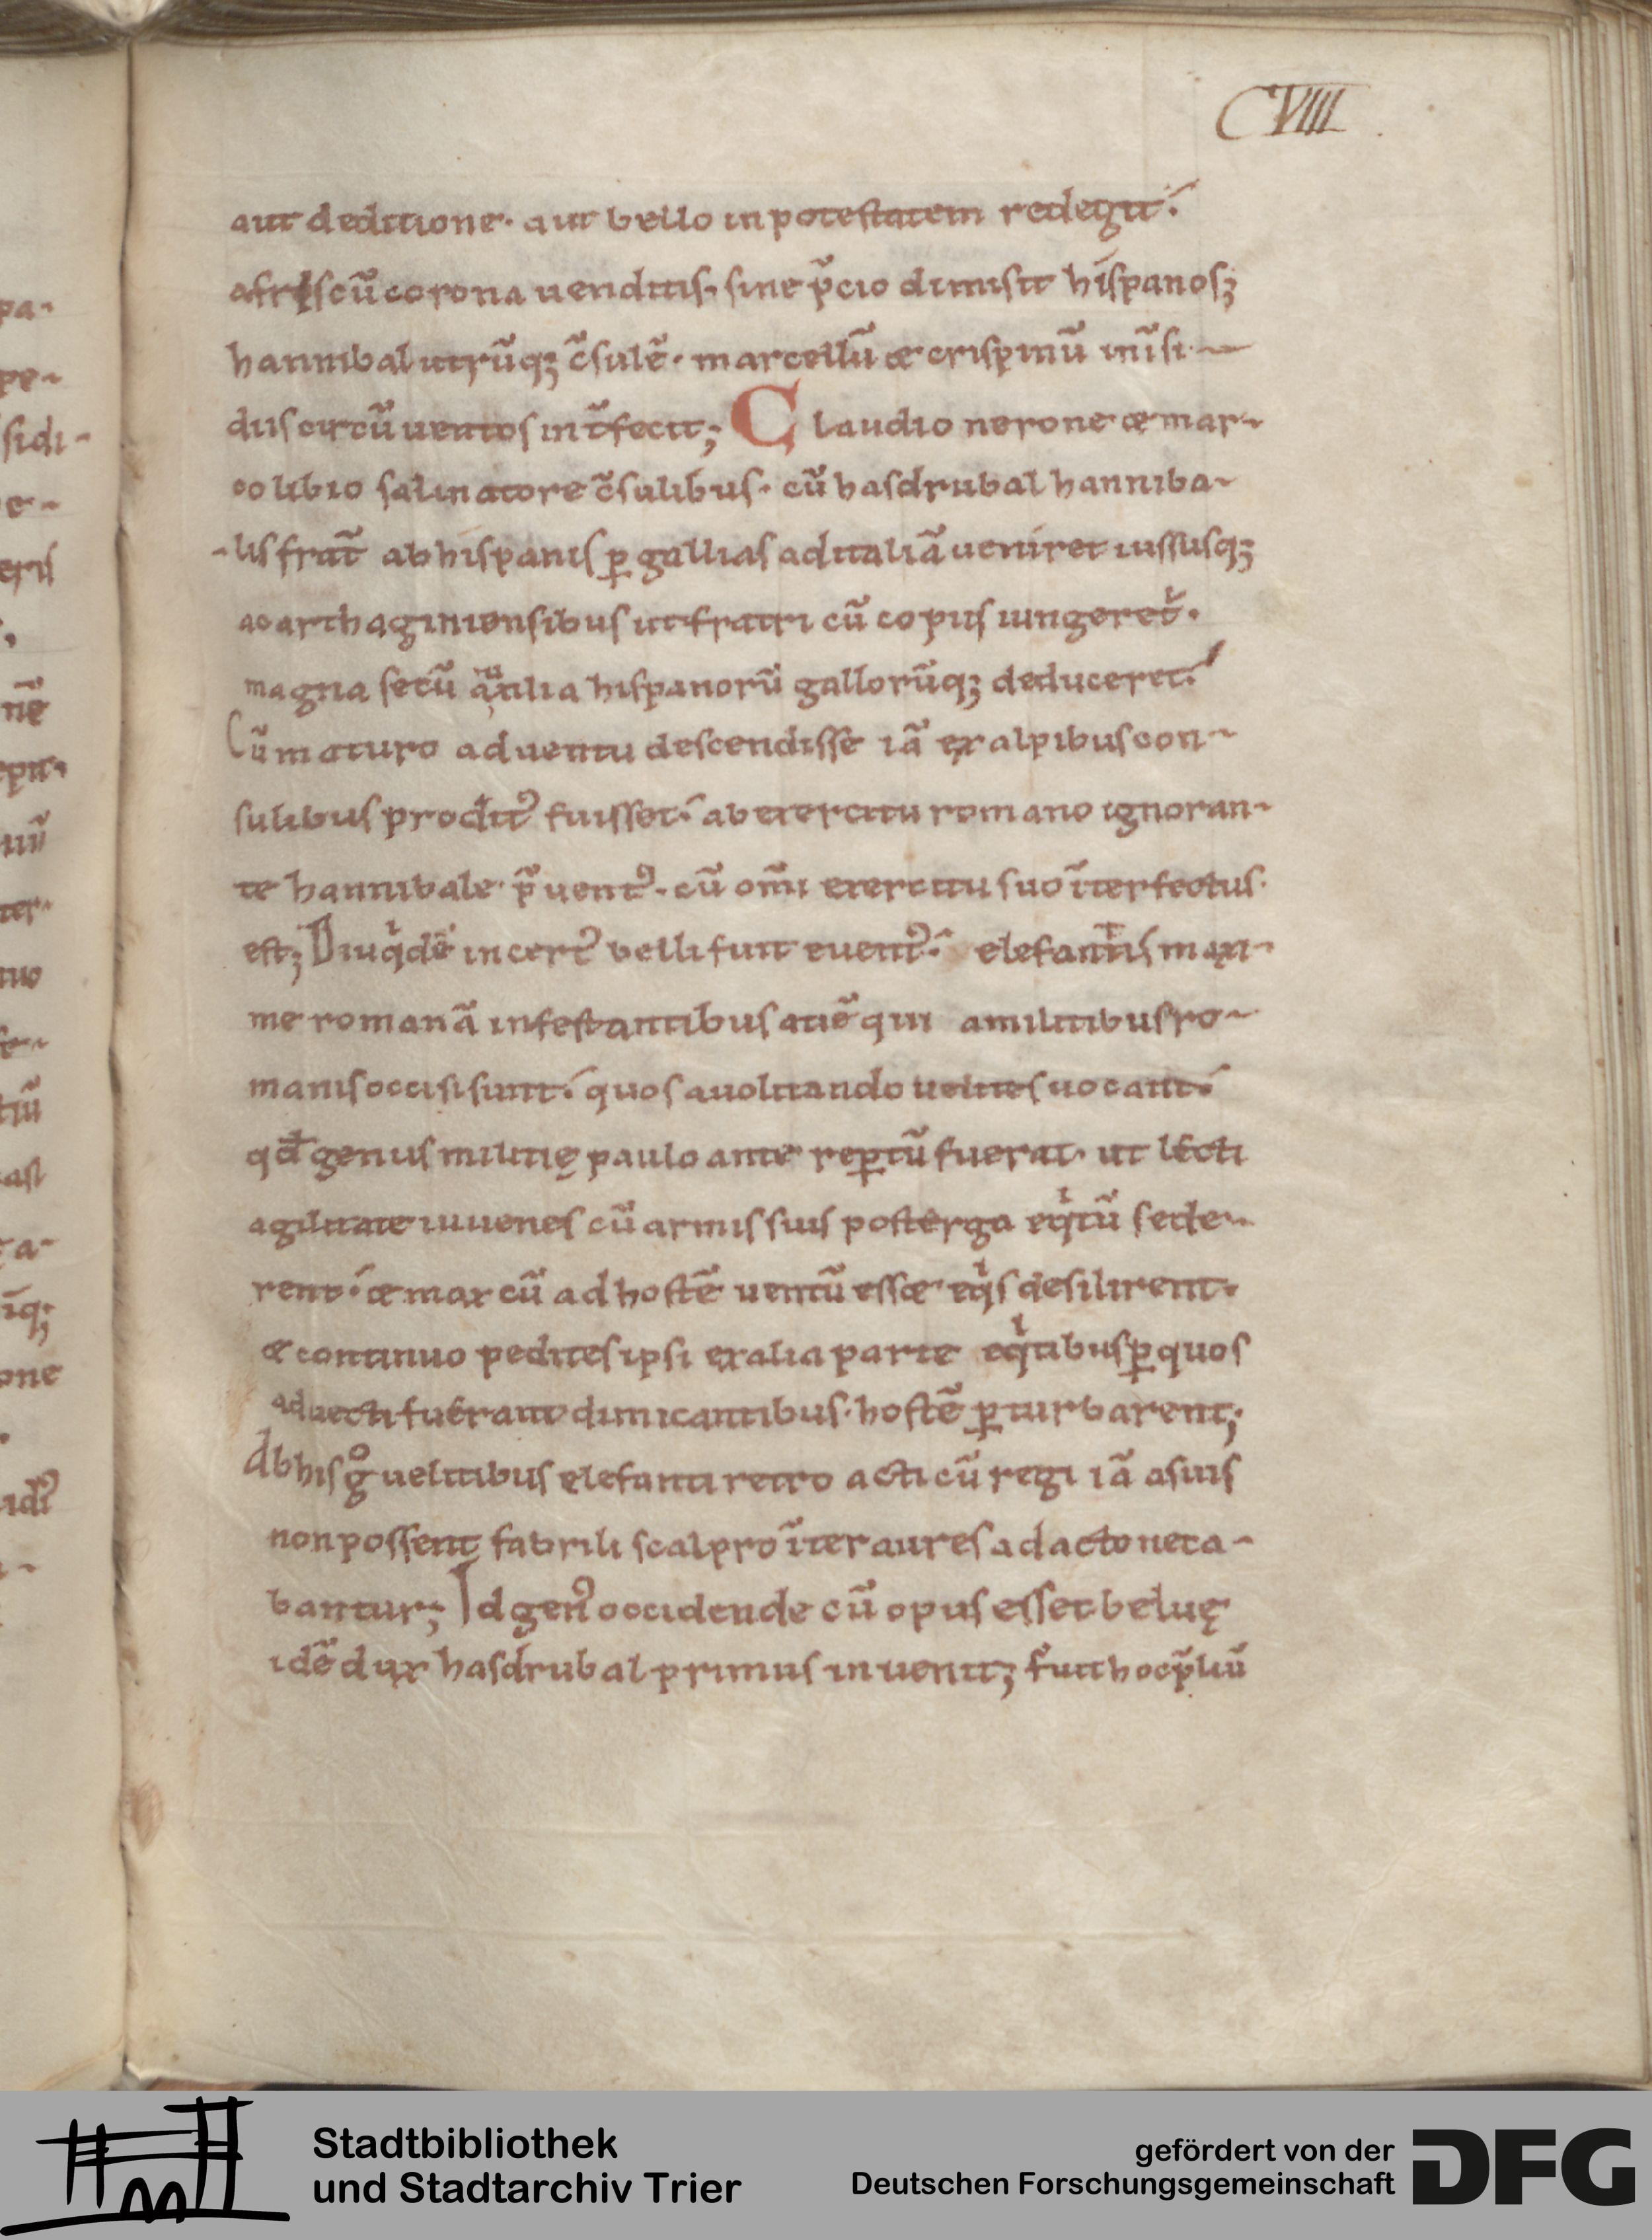 CVIII
aut deditione. aut bello in potestatem redegit.
afris cū corona uenditis, sine p̄cio dimisit hispanos;
hannibal utrūq; c̄sulē. marcellū & crispinū insi-
diis circū uentos int̄fecit; Claudio nerone & mar-
co libio salinatore c̄sulibus. cū hasdrubal hanniba-
-lis frat̄ ab hispanis ꝑ gallias ad italiā ueniret iussusq;
acarthaginiensibus ut fratri cū copiis iungeret᷑.
magna secū auxilia hispanorū gallorūq; deduceret.
Cū maturo aduentu descendisse iā ex alpibus con-
sulibus prodit᷒ fuisset. ab exercitu romano ignoran-
te hannibale p̄uent᷒. cū om̄i exercitu suo īterfectus.
est; Diu qͥdē incert᷒ belli fuit euent᷒. elefantis maxi-
me romanā infestantibus aciē qui amilitibus ro-
manis occisi sunt. quos auolitando uelites uocant.
qđ genus militię paulo ante reꝑtū fuerat. ut lecti
agilitate iuuenes cū armis suis post terga eqͥtū sede-
rent. & mox cū ad hostē uentū ess& eqͥs desilirent.
& continuo pedites ipsi ex alia parte eqͥtibus ꝑ quos
aduecti fuerant dimicantibus. hostē ꝑturbarent;
Ab his gͦ uelitibus elefanti retro acti cū regi iā asuis
non possent fabrili scalpro īter aures adacto neca-
bantur; Id gen᷒ occidende cū opus esset beluę
idē dux hasdrubal primus inuenit; fuit hoc p̄liū
Stadtbibliothek
und Stadtarchiv Trier
gefördert von der
Deutschen Forschungsgemeinschaft
DFG